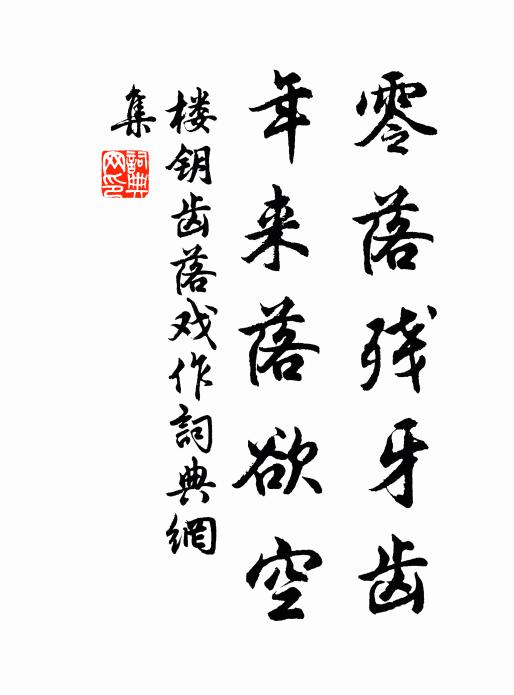 零落残牙齿
年来落欲空
楼钥齿落戏作詞典網
集
詞典网印